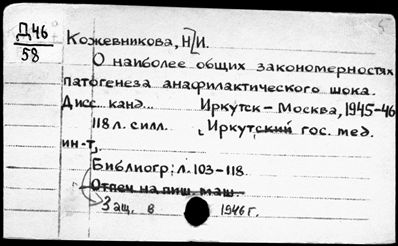 Д46
58
Кожевникова, Н.И.
О наиболее общих закономерностях
патогенеза анафилактического шока.
Дисс. канд. Иркутск-Москва, 1945-46
118 л. силл. Иркутский гос. мед.
ин-т,
Библиогр: л. 103-118.
Отпеч на пиш. маш.
Защ. в 1946 г.